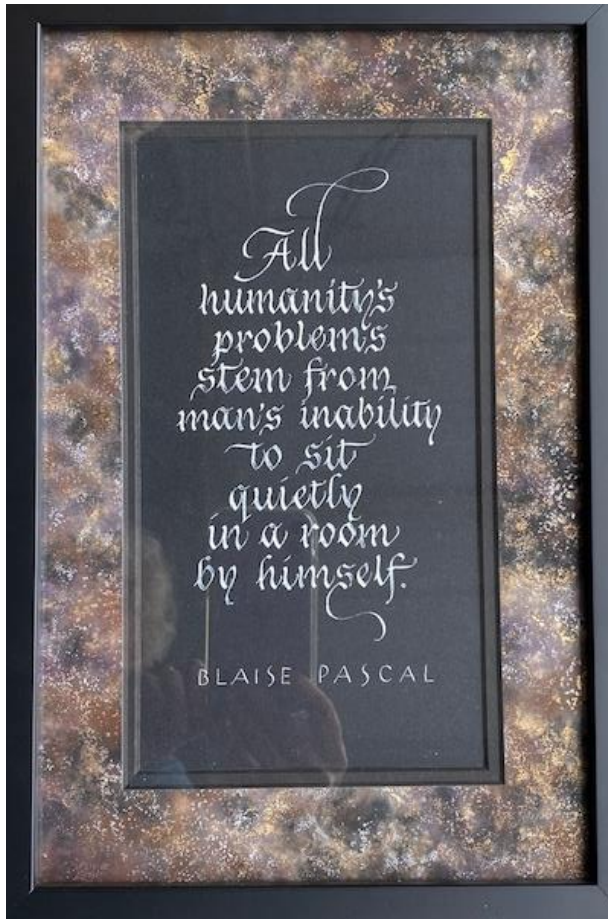 All
humanity's
problem's
stem from
man's inability
to sit
quietly
in a room
by himself.
BLAISE PASCAL